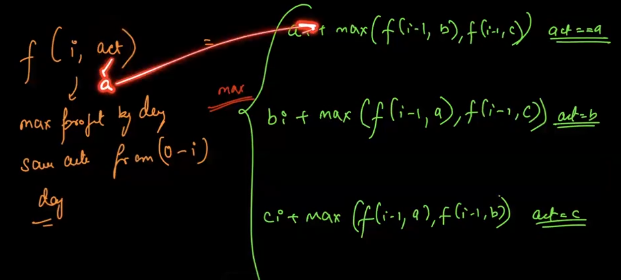 f(i, act) =
a
max profit by day
act from (0-i)
day
max
ai + max(f(i-1, b), f(i-1, c)) act==a
bi + max(f(i-1, a), f(i-1, c)) act=b
ci + max(f(i-1, a), f(i-1, b)) act=c